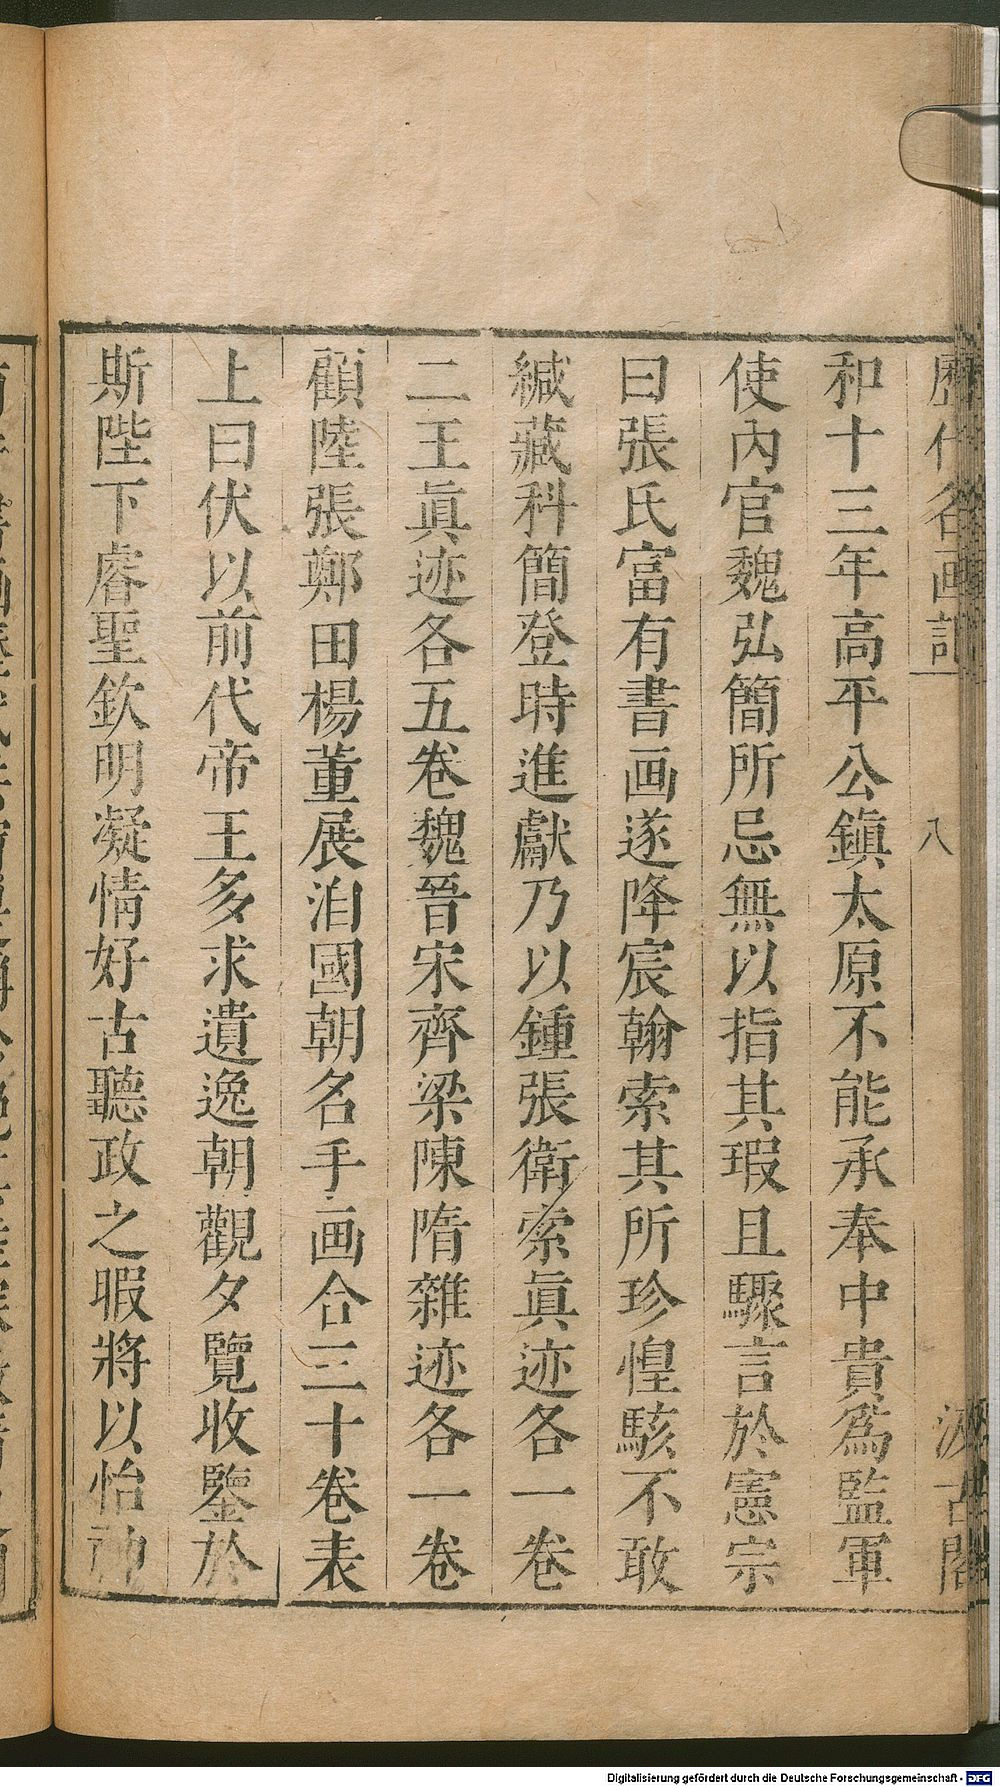 歷代名画記一 八 汲古閣
和十三年高平公鎭太原不能承奉中貴爲監軍
使內官魏弘簡所忌無以指其瑕且驟言於憲宗
曰張氏富有書画遂降宸翰索其所珍惶駭不敢
緘藏科簡登時進獻乃以鍾張衛索眞迹各一卷
二王眞迹各五卷魏晉宋齊梁陳隋雜迹各一卷
顧陸張鄭田楊董展洎國朝名手画合三十卷表
上曰伏以前代帝王多求遺逸朝觀夕覽收鑒於
斯陛下睿聖欽明凝情好古聽政之暇將以怡神
Digitalisierung gefördert durch die Deutsche Forschungsgemeinschaft - DFG